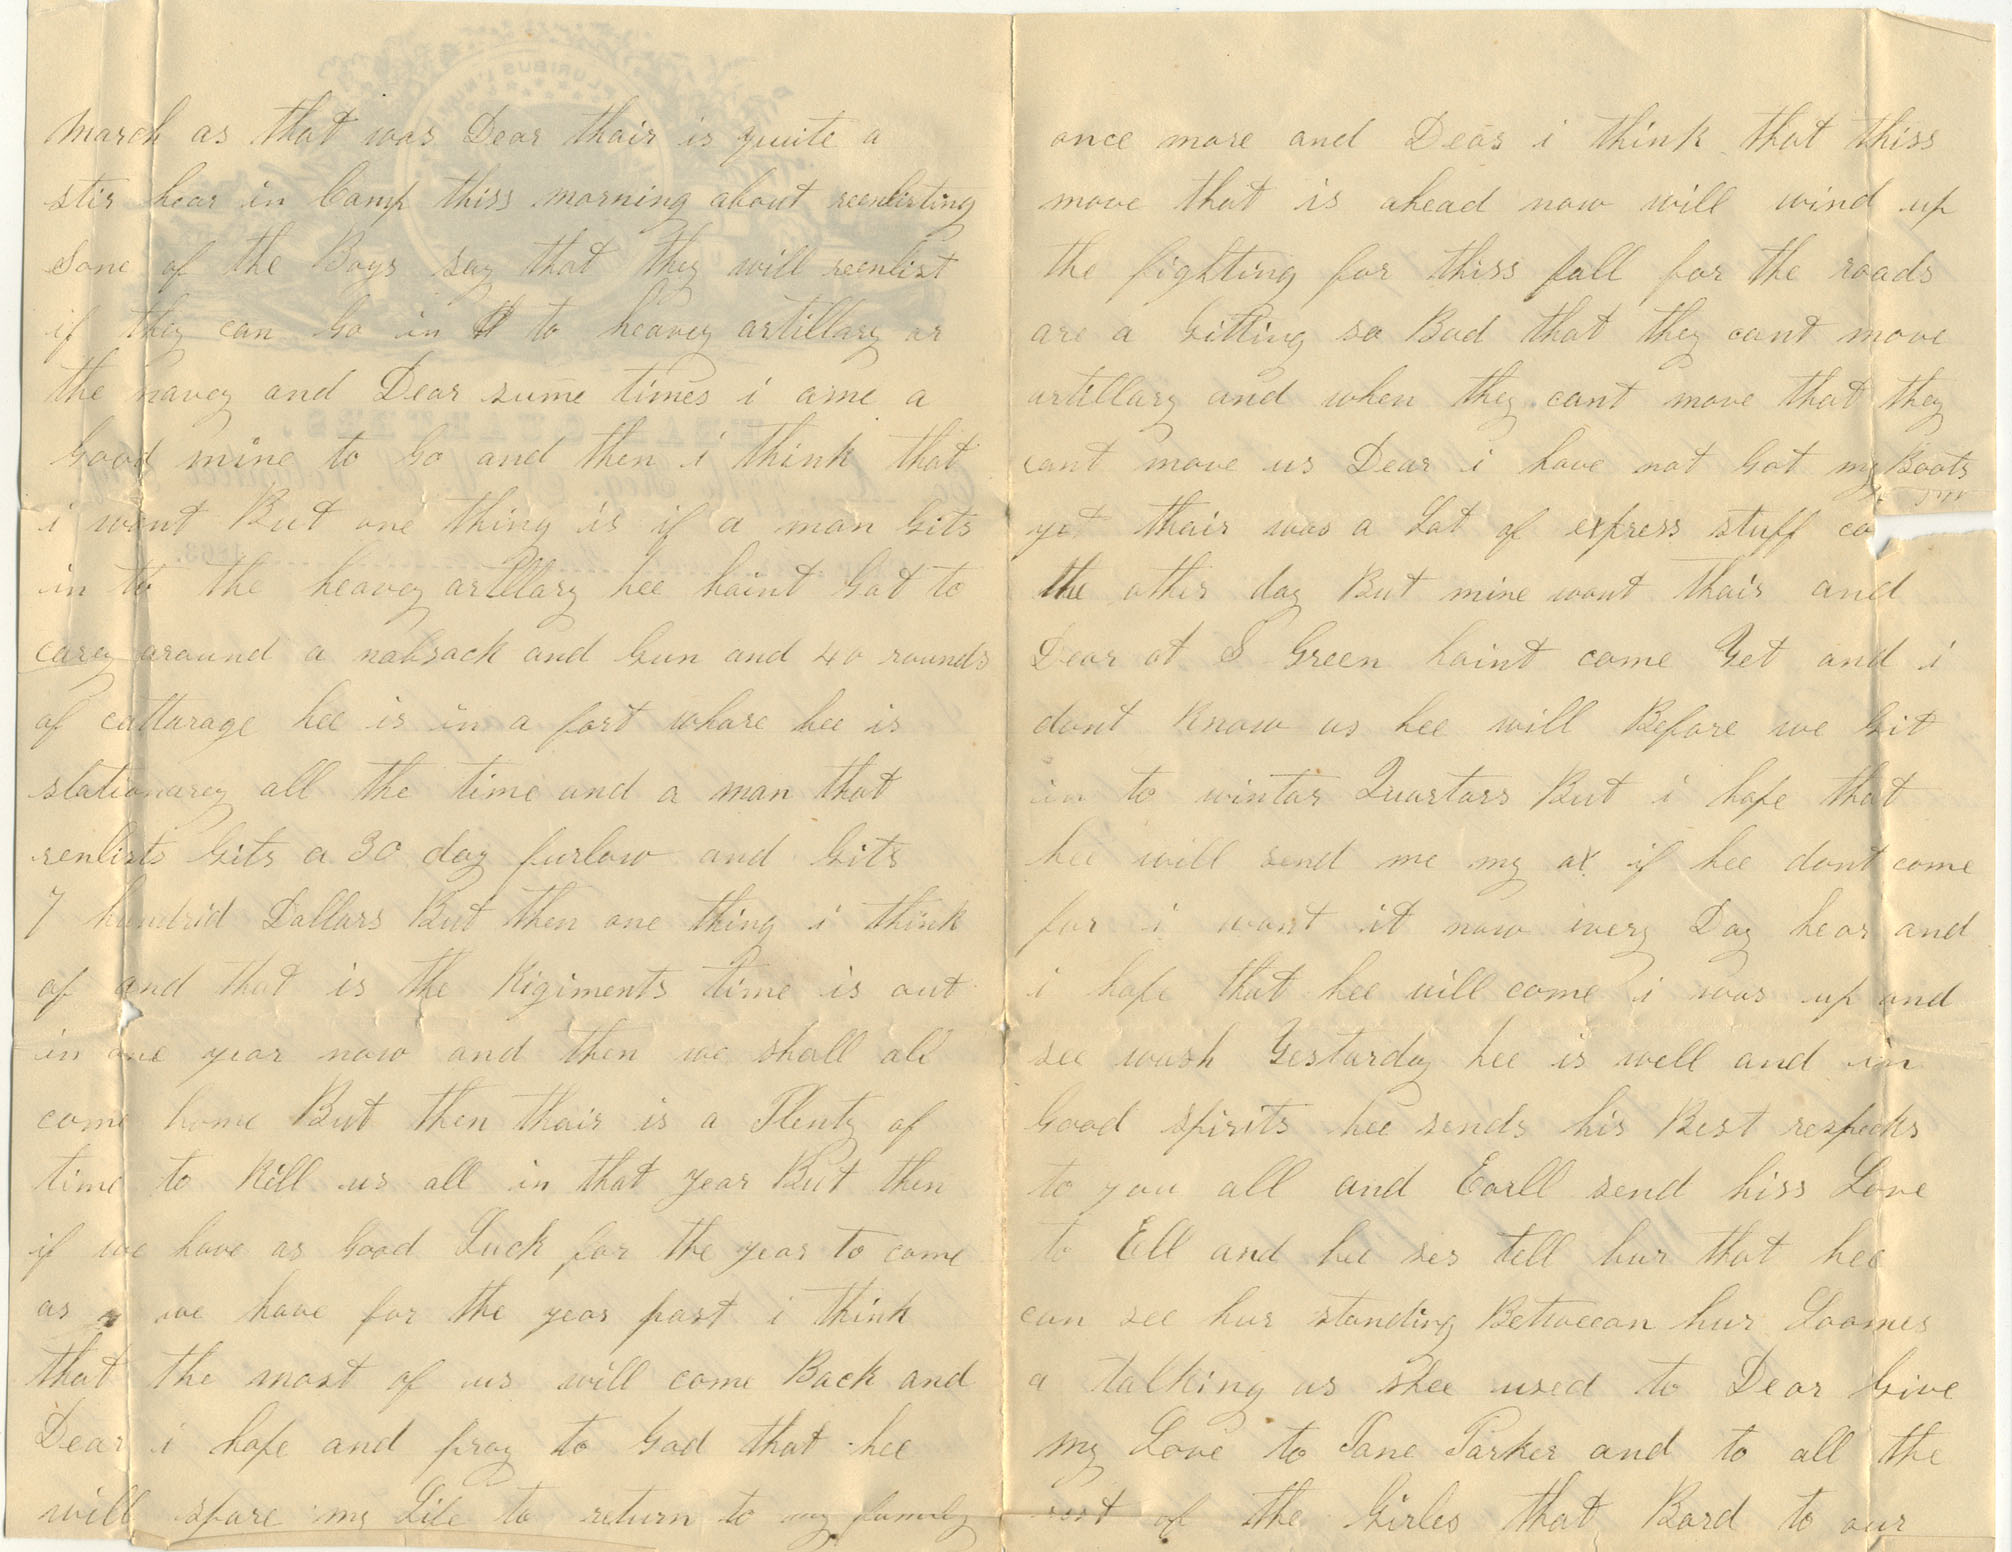 march as that was Dear thair is quite a
stir hear in Camp thiss morning about reenlisting
Some of the Boys say that they will reenlist
if they can Go in to heavey artillary or
the navey and Dear sume times i ame a
Good mine to Go and then i think that
i wont But one thing is if a man Gits
in to the heavey artillary hee haint Got to
carey around a nabsack and Gun and 40 rounds
of catturage hee is in a fort whare hee is
stationarey all the time and a man that
renlists Gits a 30 day furlow and Gits
7 hundrid Dollars But then one thing i think
of and that is the Rigiments time is out
in one year now and then we shall all
come home But then thair is a Plenty of
time to Kill us all in that year But then
if we have as Good Luck for the year to come
as we have for the year past i think
that the most of us will come Back and
Dear i hope and pray to God that hee
will spare my Life to return to my family
once more and Dear i think that thiss
move that is ahead now will wind up
the fighting for thiss fall for the roads
are a Gitting so Bad that they cant move
artillary and when they cant move that they
cant move us Dear i have not Got my Boots
yet thair was a Lot of express stuff co
the other day But mine wont thair and
Dear at S Green haint come Yet and i
dont Know as hee will Before we Git
in to wintar Quartars But i hope that
hee will send me my ax if hee dont come
for i want it now every Day hear and
i hope that hee will come i was up and
see wash Yesturday hee is well and in
Good spirits hee sends his Best respecks
to you all and Earll send hiss Love
to Ell and hee ses tell hur that hee
can see hur standing Betweean hur Loomes
a talking as shee used to Dear Give
my Love to Jane Parker and to all the
rest of the Girles that Bord to our
PLURIBUS UNUM
1863.